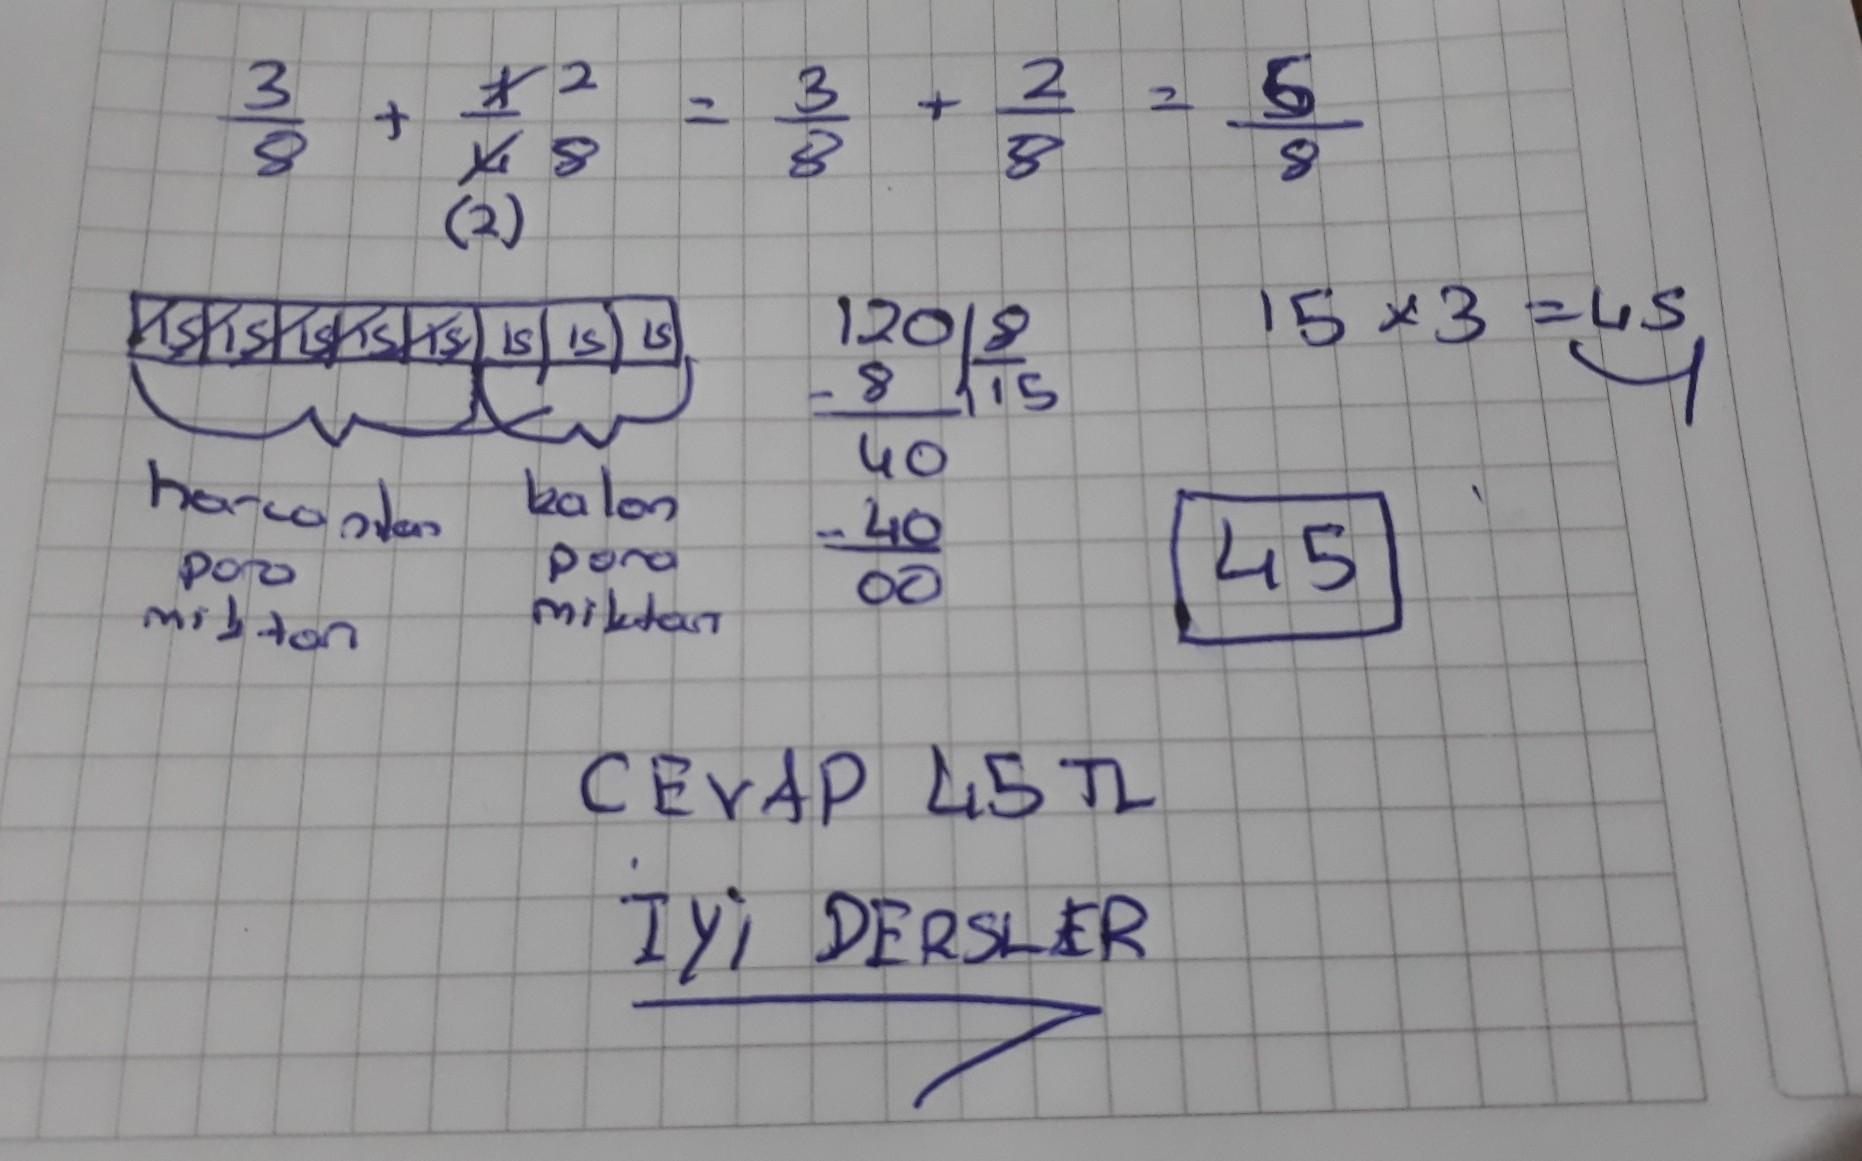 3/8 + 1/4 2/8 = 3/8 + 2/8 = 5/8
(2)
15 15 15 15 15 15 15 15
harcanılan
para
miktarı
kalan
para
miktarı
120 8
- 8 15
40
- 40
00
15 x 3 = 45
45
CEVAP 45 TL
İyi DERSLER